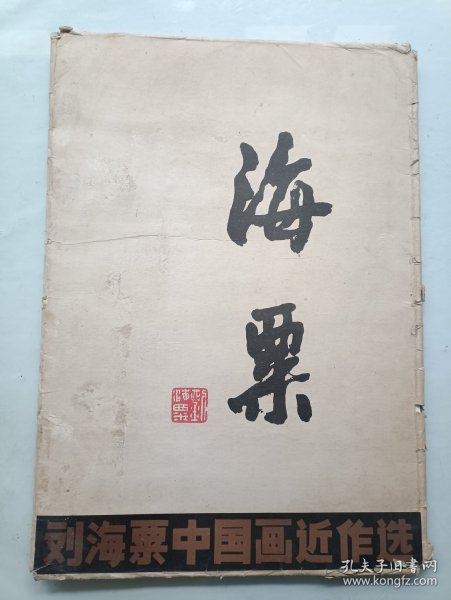 海粟
刘海粟中国画近作选
孔夫子旧书网
www.kongfz.com